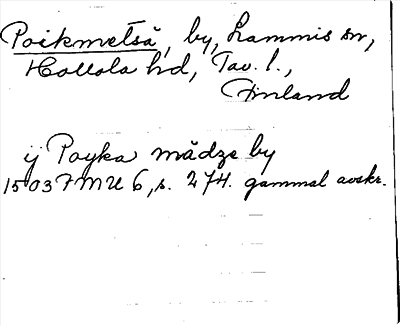 Poikmetsä, by, Lammis sn,
Hollola hd, Tav. l.,
Finland
ij Poyka mädze by
1503 FMU 6, s. 274. gammal avskr.